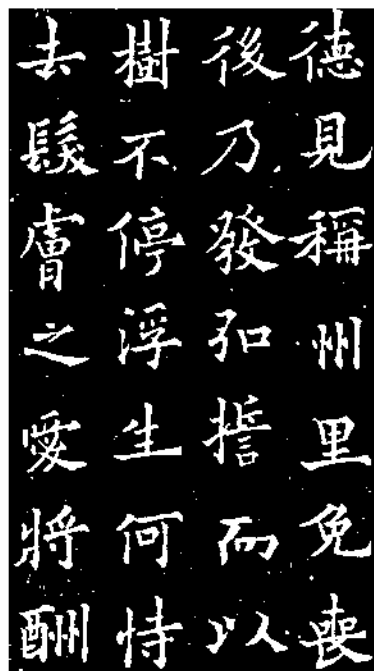 德見稱州里免喪
後乃發弘誓而以
樹不停浮生何恃
去髮膚之愛將酬